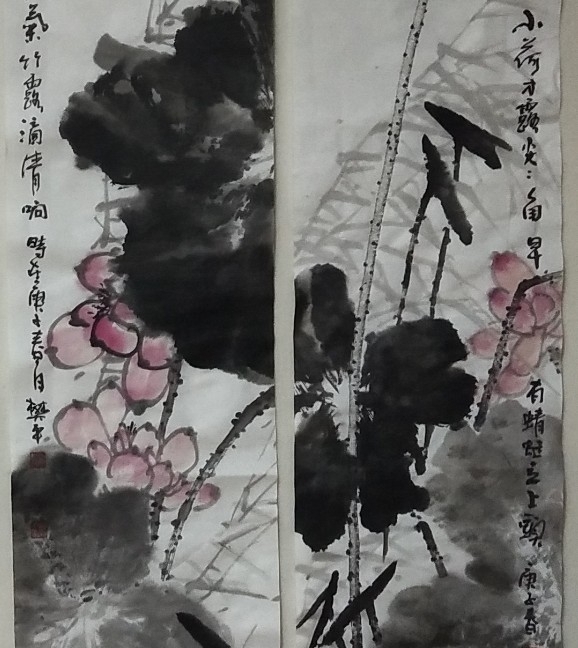 小荷才露尖尖角早
有蜻蜓立上頭 庚子春
氣竹露滴清响 時在庚子春月 樊